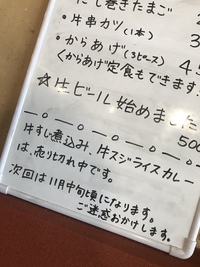 だし巻きたまご
・牛串カツ(1本) 3
・からあげ(3ピース) 45
〈からあげ定食もできます
☆生ビール始めました
500
牛すじ煮込み、牛スジライスカレー
は、売り切れ中です。
次回は11月中旬頃になります。
ご迷惑おかけします。